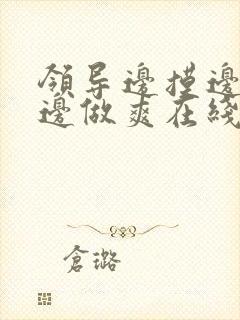 領导邊摸邊
邊做爽在綫
倉璐